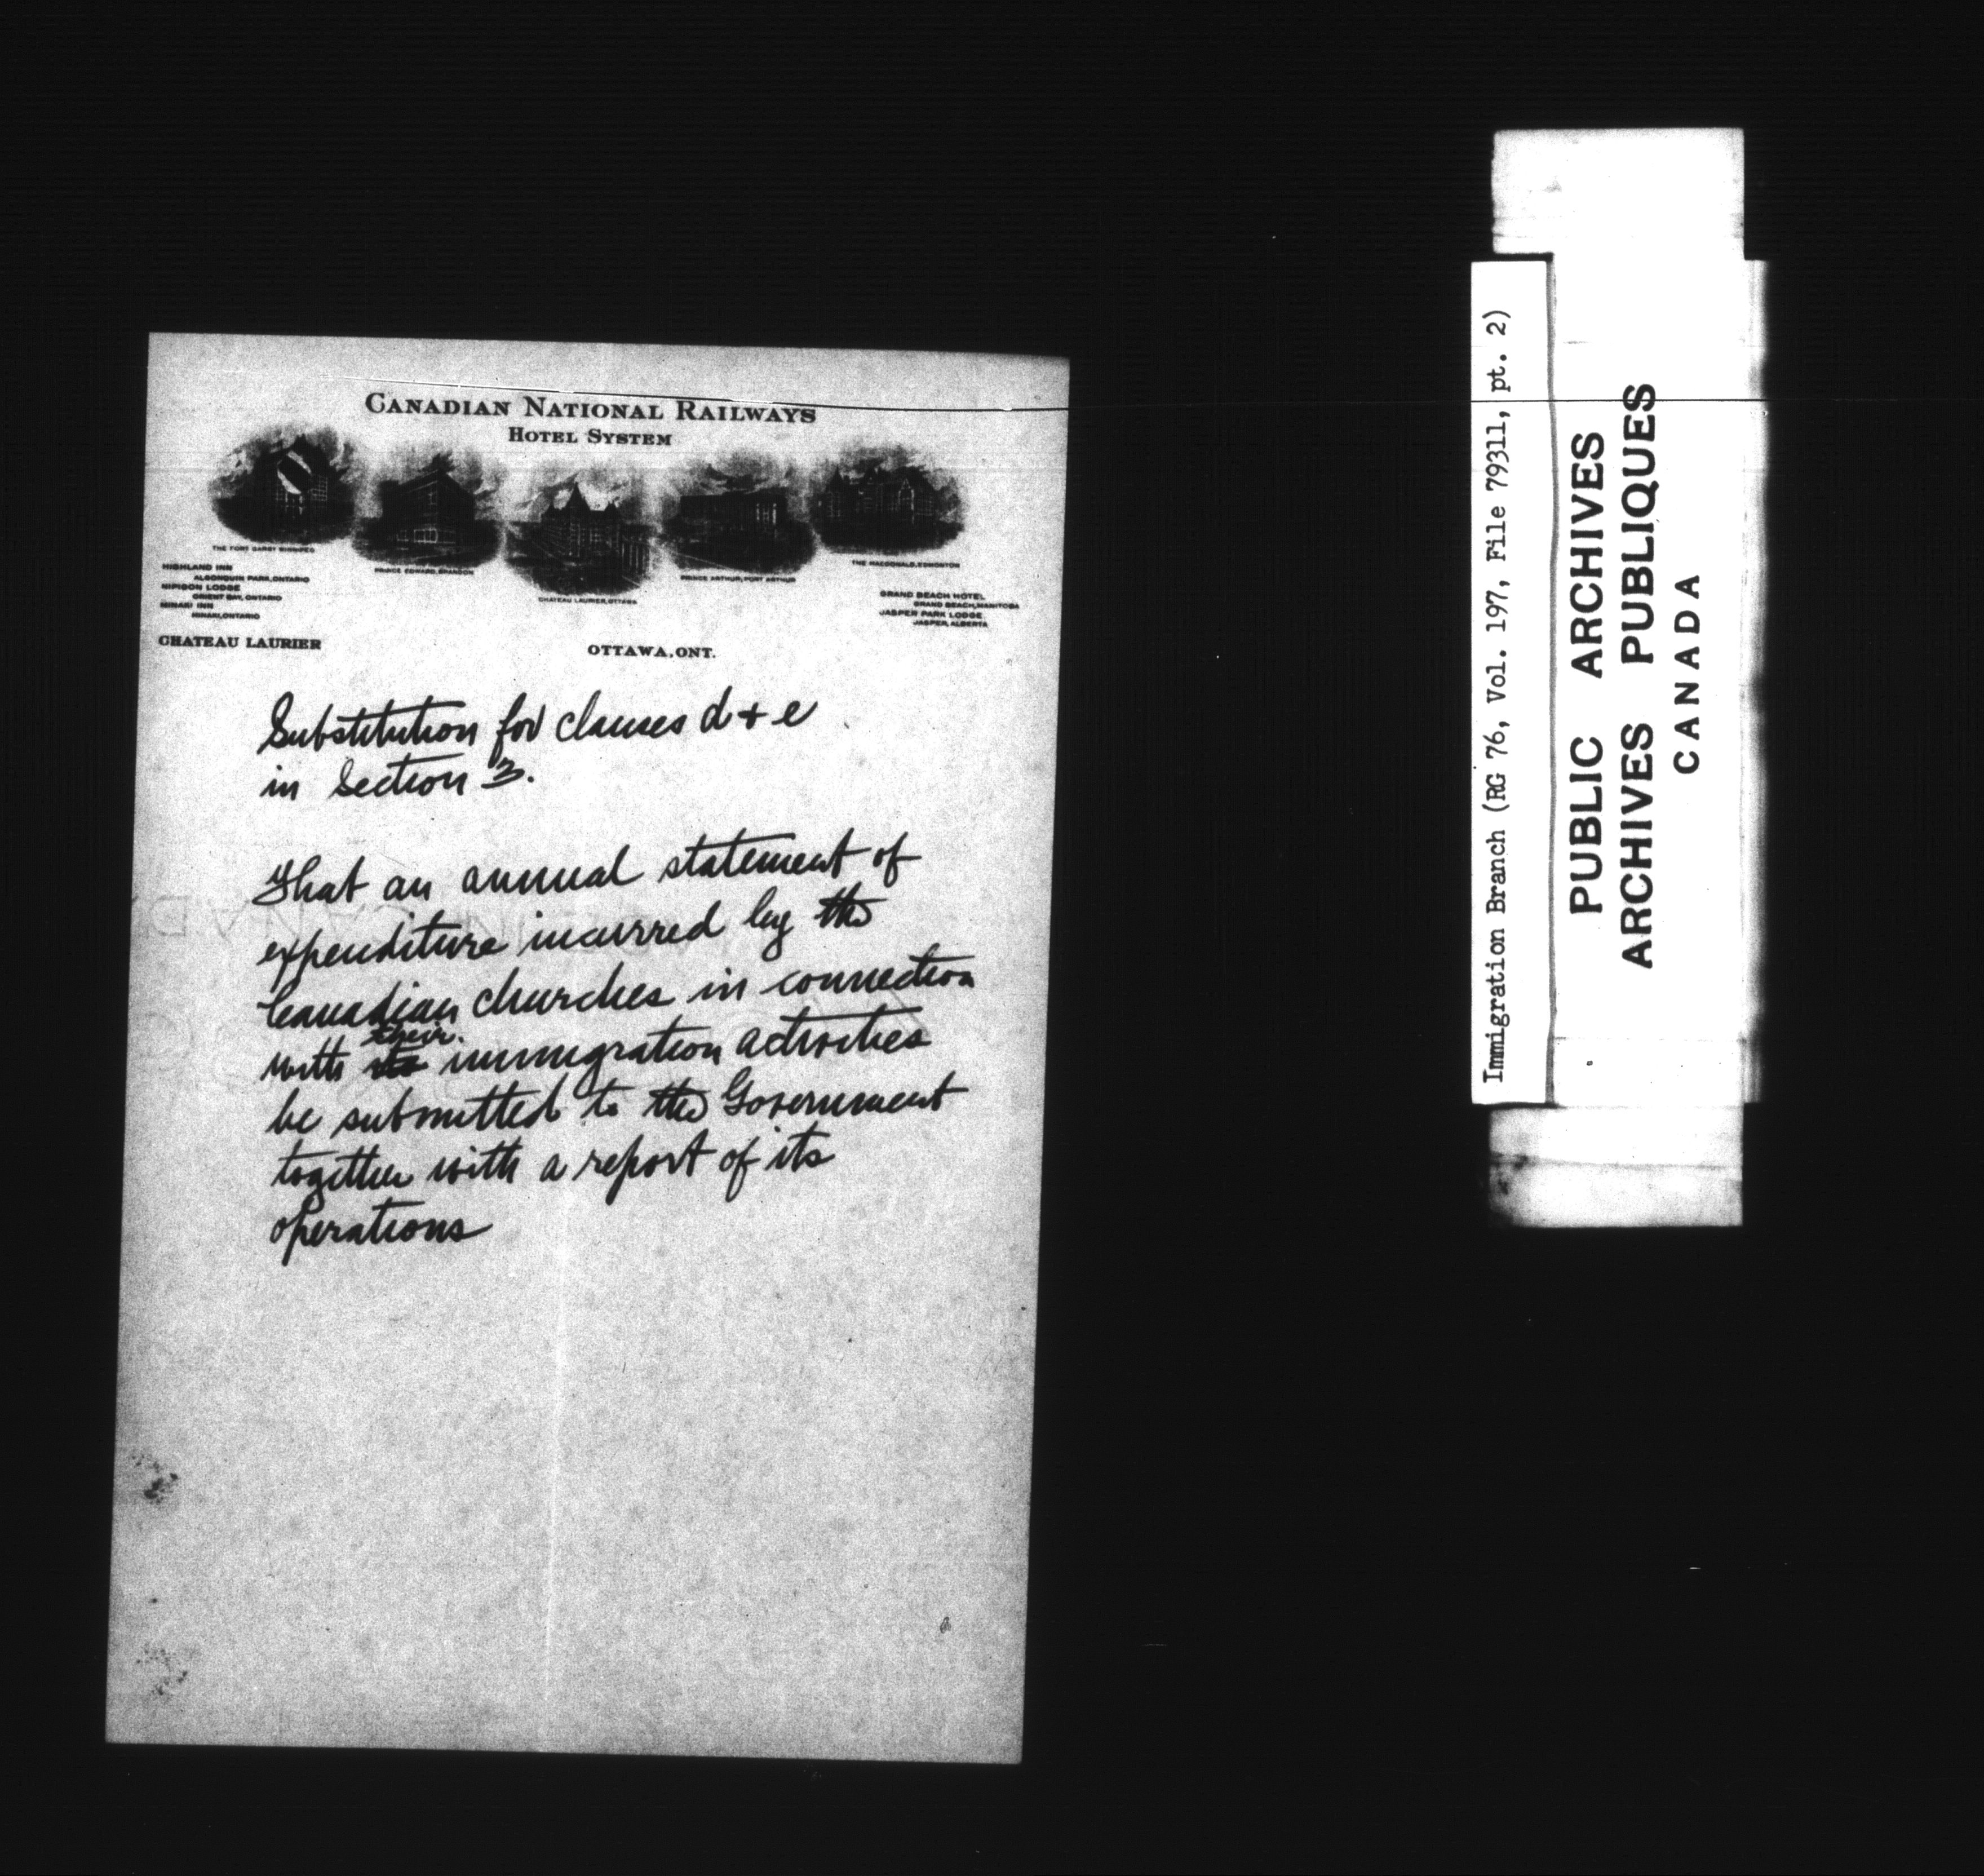 CANADIAN NATIONAL RAILWAYS
HOTEL SYSTEM
THE FORT GARRY WINNIPEG
PRINCE EDWARD, BRANDON
CHATEAU LAURIER, OTTAWA
PRINCE ARTHUR, PORT ARTHUR
THE MACDONALD, EDMONTON
HIGHLAND INN
ALGONQUIN PARK, ONTARIO
NIPIGON LODGE
ORIENT BAY, ONTARIO
MINAKI INN
MINAKI, ONTARIO
GRAND BEACH HOTEL
GRAND BEACH, MANITOBA
JASPER PARK LODGE
JASPER, ALBERTA
CHATEAU LAURIER
OTTAWA, ONT.
Substitution for clauses d + e
in Section 3.
That an annual statement of
expenditure incurred by the
Canadian churches in connection
their
with its immigration activities
be submitted to the Government
together with a report of its
operations
Immigration Branch (RG 76, Vol. 197, File 79311, pt. 2)
PUBLIC ARCHIVES
ARCHIVES PUBLIQUES
CANADA